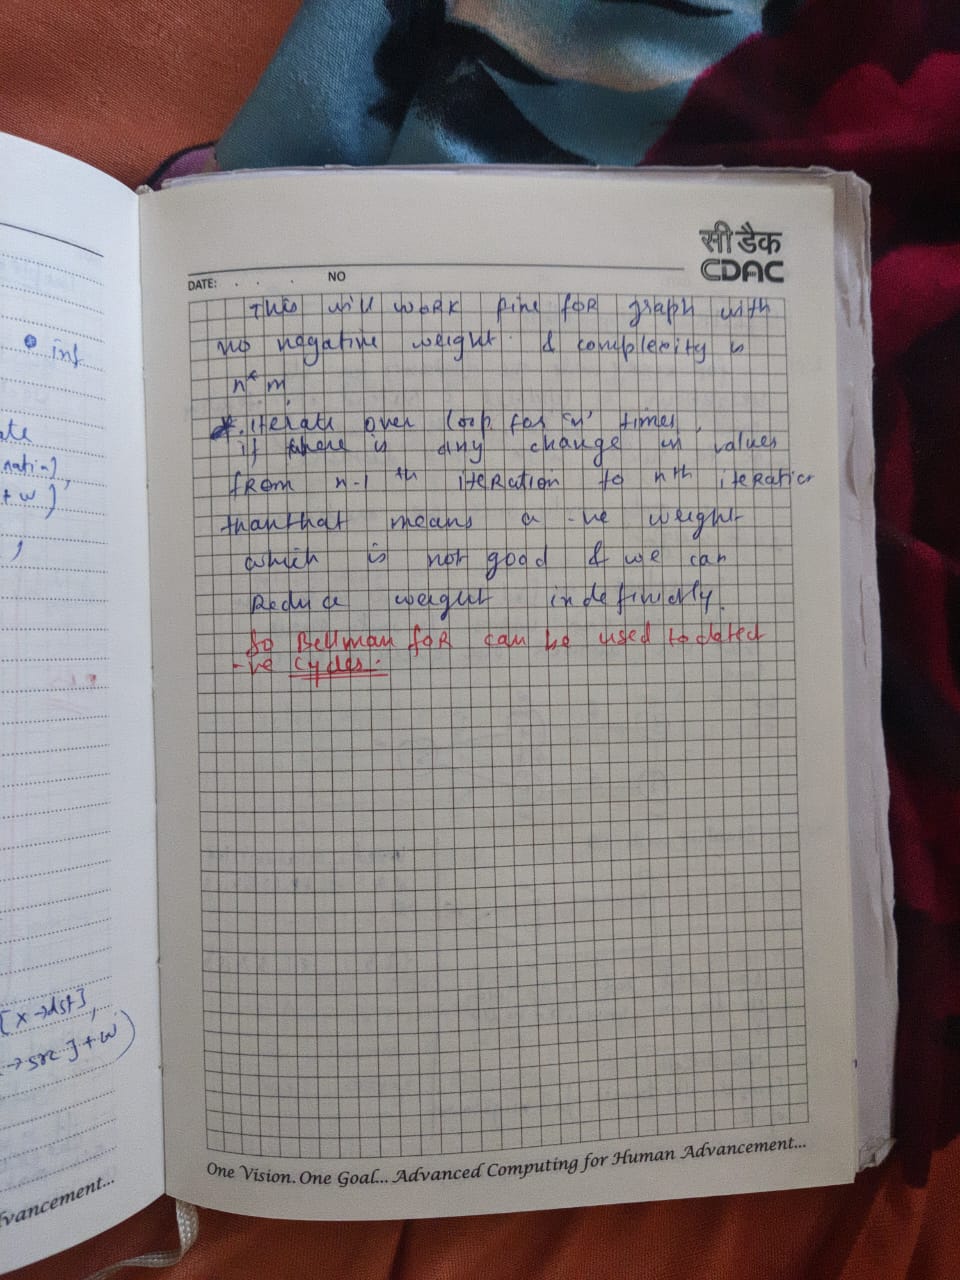 inf
ate
natin],
+ w)
,
[x→dst],
→src]+w)
vancement...
सी डैक
CDAC
DATE: . . . NO
This will work fine for graph with
no negative weight. & complexity is
n*m.
*. iterate over loop for 'n' times,
if there is any change in values
from n-1 th iteration to nth iteration
than that means a -ve weight
which is not good & we can
Reduce weight indefinitly.
So Bellman for can be used to detect
-ve cycles.
One Vision. One Goal... Advanced Computing for Human Advancement...